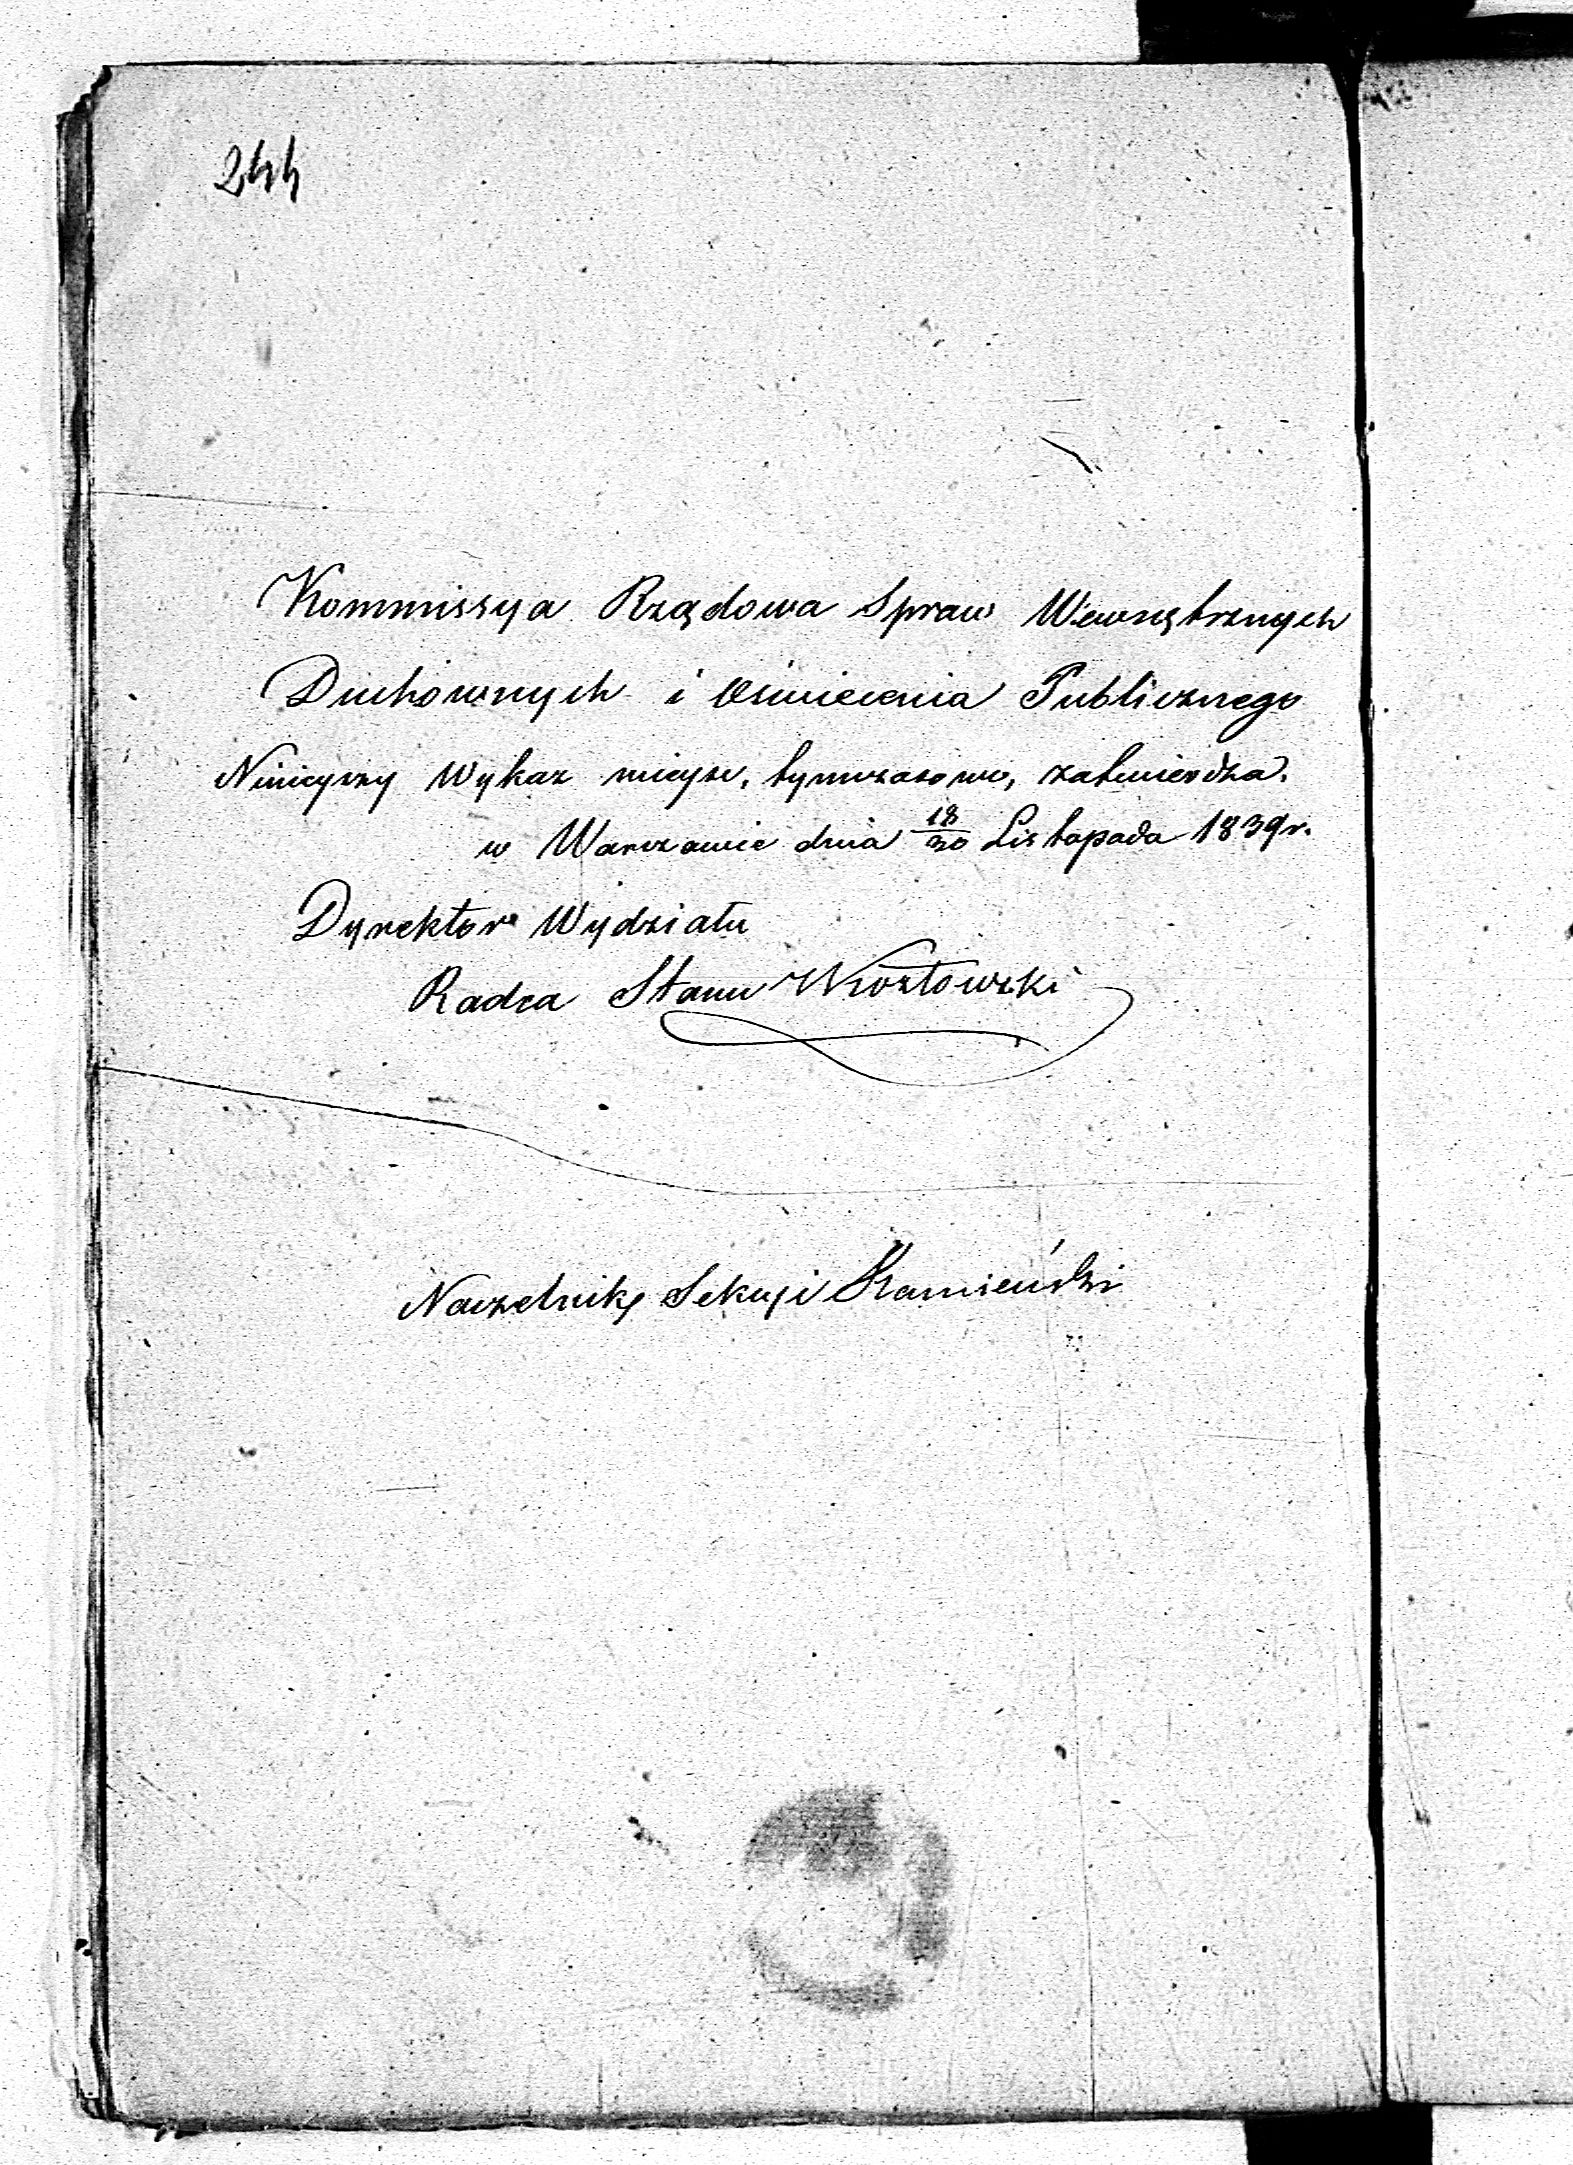 244
Kommissya Rządowa Spraw Wewnętrznych
Duchownych i Oświecenia Publicznego
Ninieyszy Wykaz mieysc, tymczasowo, zatwierdza.
w Warszawie dnia 18/30 Listopada 1839 r.
Dyrektor Wydziału
Radca Stanu Kozłowski
Naczelnik Sekcyi Kamieński